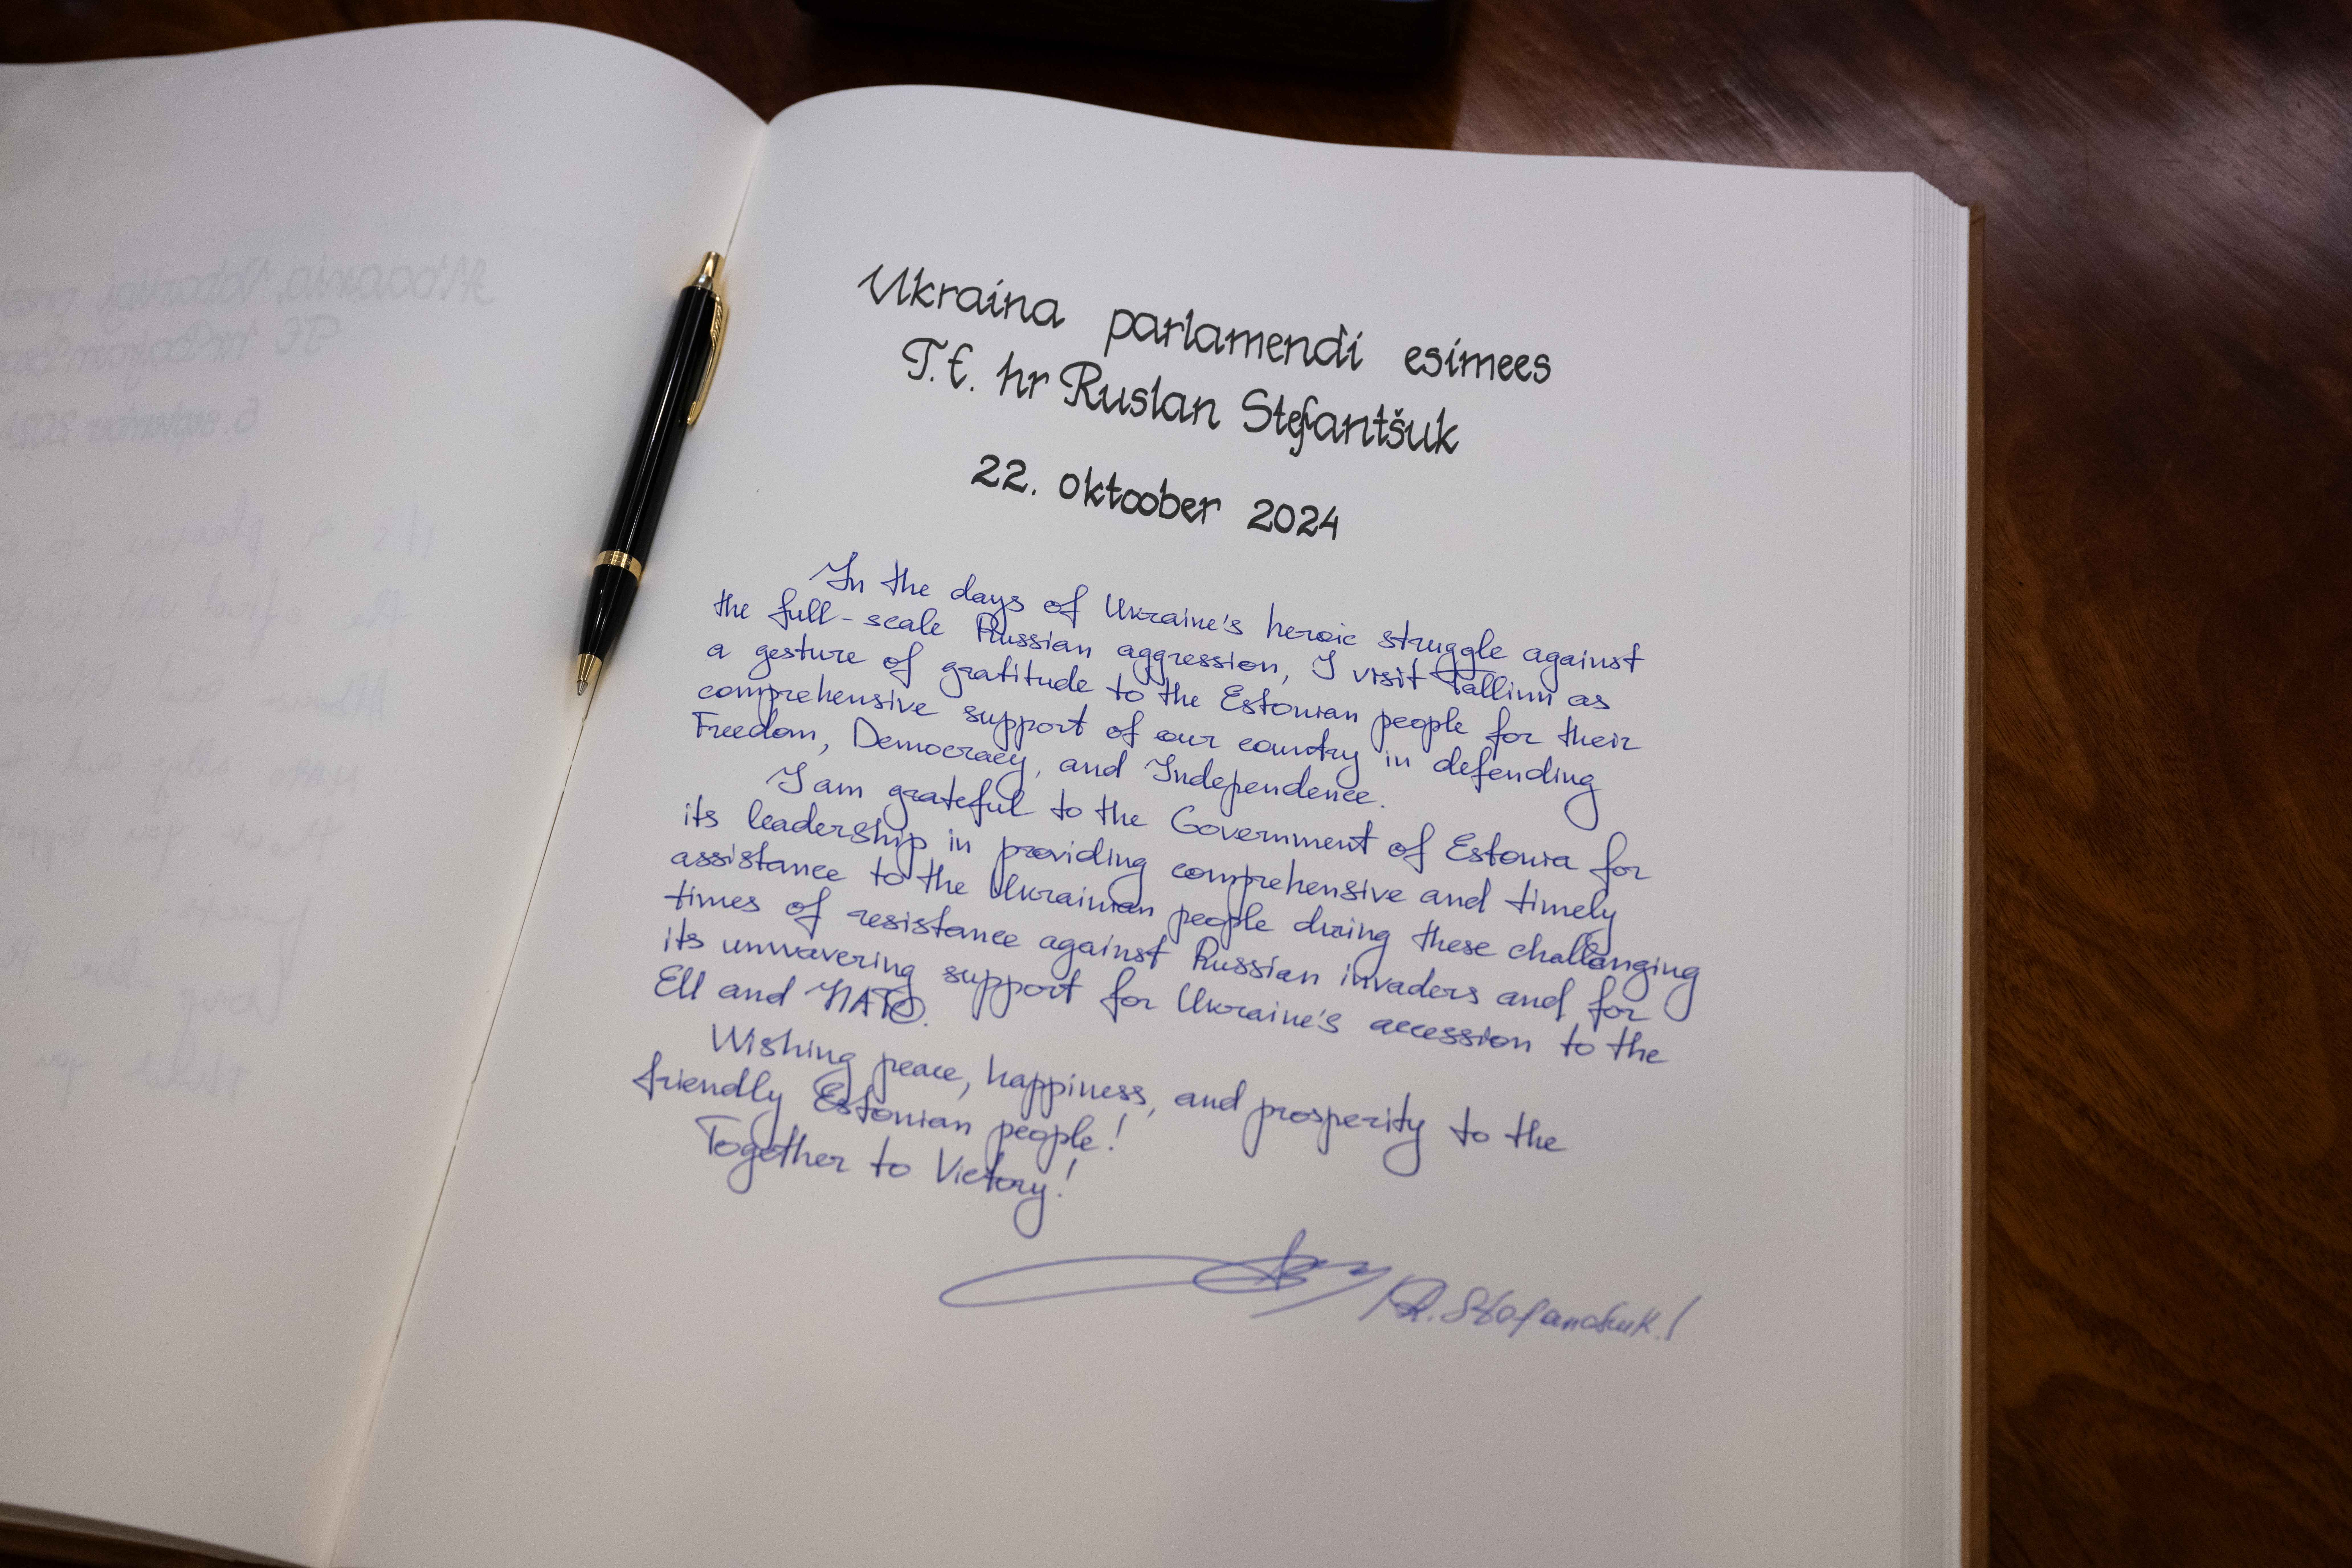 Ukraina parlamendi esimees
T.E. hr Ruslan Stefantšuk
22. oktoober 2024
In the days of Ukraine's heroic struggle against
the full-scale Russian aggression, I visit Tallinn as
a gesture of gratitude to the Estonian people for their
comprehensive support of our country in defending
Freedom, Democracy, and Independence.
I am grateful to the Government of Estonia for
its leadership in providing comprehensive and timely
assistance to the Ukrainian people during these challanging
times of resistance against Russian invaders and for
its unwavering support for Ukraine's accession to the
EU and NATO.
Wishing peace, happiness, and prosperity to the
friendly Estonian people!
Together to Victory!
/R. Stefanchuk./